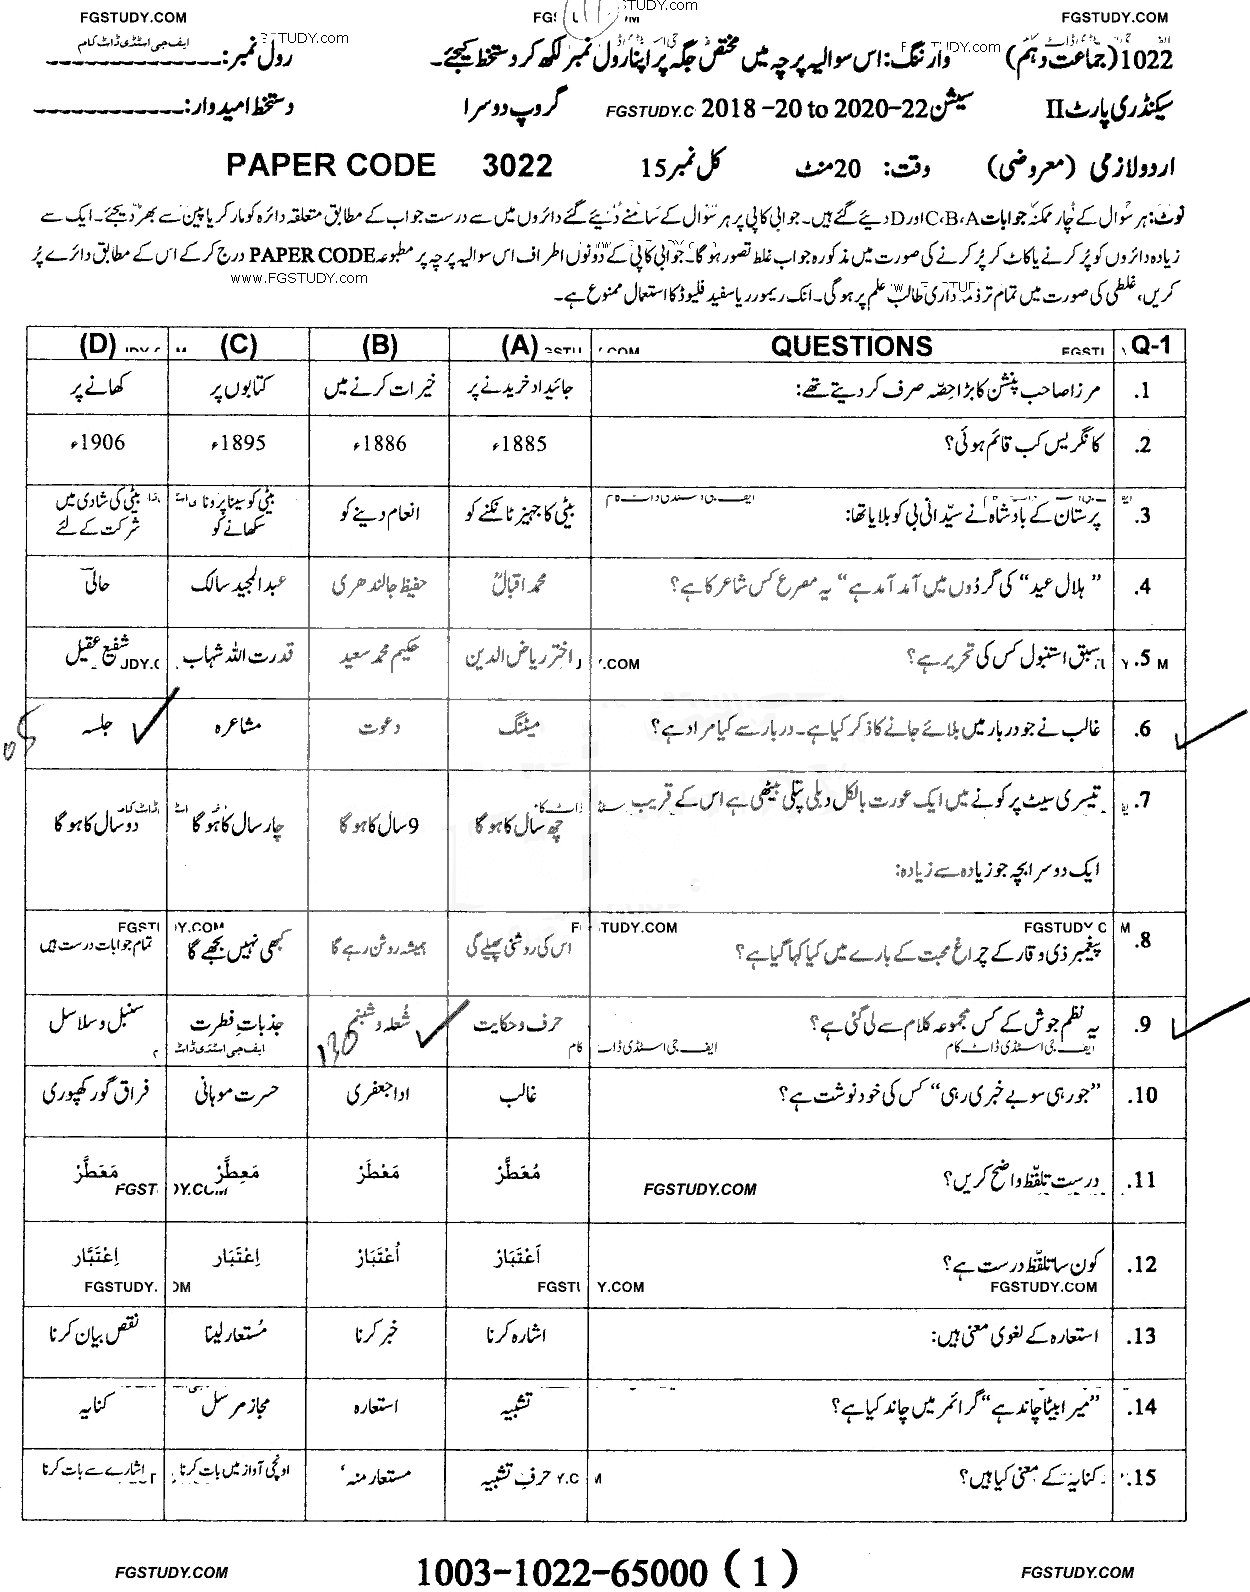 FGSTUDY.COM FGSTUDY.COM
1022 (جماعت دہم) وارننگ: اس سوالیہ پرچہ میں مختص جگہ پر اپنا رول نمبر لکھ کر دستخط کیجئے۔ رول نمبر: ____________
سیکنڈری پارٹ II سیشن 2018 -20 to 2020-22 گروپ دوسرا دستخط امیدوار: ____________
اردو لازمی (معروضی) وقت: 20 منٹ کل نمبر 15 PAPER CODE 3022
نوٹ: ہر سوال کے چار ممکنہ جوابات C،B،A اور D دیئے گئے ہیں۔ جوابی کاپی پر ہر سوال کے سامنے دیئے گئے دائروں میں سے درست جواب کے مطابق متعلقہ دائرہ کو مارکر یا پین سے بھر دیجئے۔ ایک سے
زیادہ دائروں کو پُر کرنے یا کاٹ کر پُر کرنے کی صورت میں مذکورہ جواب غلط تصور ہو گا۔ جوابی کاپی کے دونوں اطراف اس سوالیہ پرچہ پر مطبوعہ PAPER CODE درج کر کے اس کے مطابق دائرے پُر
کریں، غلطی کی صورت میں تمام تر ذمہ داری طالب علم پر ہو گی۔ انک ریموور یا سفید فلیوڈ کا استعمال ممنوع ہے۔
www.FGSTUDY.com
Q-1 QUESTIONS (A) (B) (C) (D)
1. مرزا صاحب پنشن کا بڑا حصّہ صرف کر دیتے تھے: جائیداد خریدنے پر خیرات کرنے میں کتابوں پر کھانے پر
2. کانگریس کب قائم ہوئی؟ 1885ء 1886ء 1895ء 1906ء
3. پرستان کے بادشاہ نے سیّدانی بی کو بلایا تھا: بیٹی کا جہیز ٹانکنے کو انعام دینے کو بیٹی کو سینا پرونا سکھانے کو بیٹی کی شادی میں شرکت کے لئے
4. ”ہلال عید“ کی گردُوں میں آمد آمد ہے“ یہ مصرع کس شاعر کا ہے؟ محمد اقبالؒ حفیظ جالندھری عبدالمجید سالک حالیؔ
5. سبق استنبول کس کی تحریر ہے؟ اختر ریاض الدین حکیم محمد سعید قدرت اللہ شہاب شفیع عقیل
6. غالب نے جو دربار میں بلائے جانے کا ذکر کیا ہے۔ دربار سے کیا مراد ہے؟ میٹنگ دعوت مشاعرہ جلسہ
7. تیسری سیٹ پر کونے میں ایک عورت بالکل دبلی پتلی بیٹھی ہے اس کے قریب
ایک دوسرا بچہ جو زیادہ سے زیادہ: چھ سال کا ہو گا 9 سال کا ہو گا چار سال کا ہو گا دو سال کا ہو گا
8. پیغمبر ذی وقار کے چراغ محبت کے بارے میں کیا کہا گیا ہے؟ اس کی روشنی پھیلے گی ہمیشہ روشن رہے گا کبھی نہیں بجھے گا تمام جوابات درست ہیں
9. یہ نظم جوش کے کس مجموعہ کلام سے لی گئی ہے؟ حرف و حکایت شعلہ و شبنم جذباتِ فطرت سنبل و سلاسل
130
10. ”جو رہی سو بے خبری رہی“ کس کی خود نوشت ہے؟ غالب ادا جعفری حسرت موہانی فراق گورکھپوری
11. درست تلفّظ واضح کریں؟ مُعَطَّر مَعْطَر مَعِطَّر مَعَطَّر
12. کون سا تلفّظ درست ہے؟ اَعْتَبَار اُعْتَبَار اِعْتِبَار اِعْتَبَّار
13. استعارہ کے لغوی معنی ہیں: اشارہ کرنا خبر کرنا مُستعار لینا نقص بیان کرنا
14. ”میرا بیٹا چاند ہے“ گرائمر میں چاند کیا ہے؟ تشبیہ استعارہ مجاز مرسل کنایہ
15. کنایہ کے معنی کیا ہیں؟ حرفِ تشبیہ مستعار منہ اونچی آواز میں بات کرنا اشارے سے بات کرنا
FGSTUDY.COM 1003-1022-65000 (1) FGSTUDY.COM